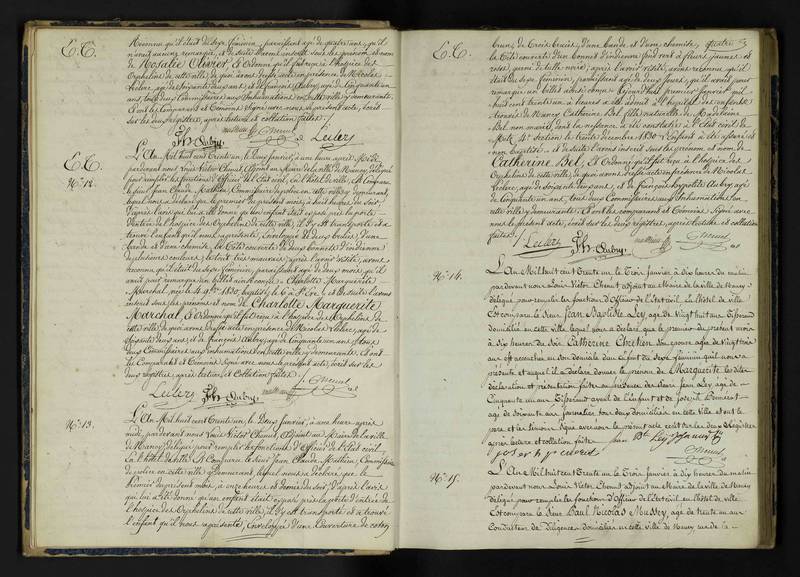 E. C.
reconnu qu'il était du sexe féminin, paraissant agé de quatre ans, qu'il
n'avait aucune remarque, et de suite l'avons inscrit sous les prénom et nom
de Rosalie Olivier, et ordonné qu'il fut reçu à l'hospice des
Orphelins de cette ville, de quoi avons dressé acte en présence de Nicolas
Leclerc, agé de soixante deux ans, et de françois Aubry, agé de cinquante un
ans, tous deux Commissaires aux Inhumations en cette ville y demeurants,
Et ont les Comparant et Témoins Signé avec nous le présent acte, écrit
sur les deux registres, après lecture et collation faites./.
E. C.
No. 12.
L'An Mil huit cent Trente un, le Deux Janvier, à une heure après Midi,
pardevant nous Louis Victor Chenut, Adjoint au Maire de la ville de Nancy, délégué
pour remplir les fonctions d'Officier de l'Etat civil, en l'hôtel de ville, Est Comparu
le Sieur Jean Claude Mathieu, Commissaire de police en cette ville y demeurant,
lequel nous a déclaré que le premier du présent mois, à huit heures du soir,
d'après l'avis qui lui a été donné qu'un enfant était exposé près la porte
d'entrée de l'hospice des Orphelins de cette ville, il s'y est transporté et a
trouvé l'enfant qu'il nous a présenté, Enveloppé de deux braies, d'une
bande et d'une chemise, la tête couverte de deux bonnets d'indienne
de plusieurs couleurs, le tout très mauvais; après l'avoir visité, avons
reconnu qu'il était du sexe féminin, paraissant agé de deux mois, qu'il
avait pour remarque un billet ainsi conçu: Charlotte Marguerite
Marchal, née le 4 9bre 1830,
inscrit sous les prénoms et nom de Charlotte Marguerite
Marchal, Et ordonné qu'il fut reçu à l'hospice des Orphelins de
cette ville, de quoi avons dressé acte en présence de Nicolas Leclerc, agé de
soixante deux ans, et de françois Aubry, agé de Cinquante un ans, tous
deux Commissaires aux Inhumations en cette ville, y demeurants. Et ont
les Comparant et Témoins Signé avec nous le présent acte, écrit sur les
deux registres, après lecture et Collation faites./.
No. 13.
L'An Mil huit cent Trente un, le Deux Janvier, à une heure après
midi, pardevant nous Louis Victor Chenut, Adjoint au Maire de la ville
de Nancy, délégué pour remplir les fonctions d'Officier de l'Etat civil,
en l'hôtel de ville, Est Comparu le Sieur Jean Claude Mathieu, Commissaire
de police en cette ville y demeurant, lequel nous a déclaré que le
premier du présent mois, à onze heures et demie du soir, d'après l'avis
qui lui a été donné qu'un enfant était exposé près la porte d'entrée de
l'hospice des Orphelins de cette ville, il s'y est transporté et a trouvé
l'enfant qu'il nous a présenté, Enveloppé d'une Couverture de coton
E. C.
brun, de Trois braies, d'une bande et d'une chemise,
la tête couverte d'un bonnet d'indienne fond vert à fleurs jaunes et
roses; après l'avoir visité, avons reconnu qu'il
était du sexe féminin, paraissant agé de deux jours, qu'il avait pour
remarque un billet ainsi conçu: Aujourd'hui premier janvier mil
huit cent trente un à heures a été admis à l'hôpital des enfants
trouvés de Nancy Catherine Bel, fille naturelle de Madeleine
Bel non mariée, dont la naissance a été constatée à l'état civil de
Metz 4e section le trente décembre 1830
non baptisée, et de suite l'avons inscrit sous les prénom et nom de
Catherine Bel, Et Ordonné qu'il fut reçu à l'hospice des
Orphelins de cette ville, de quoi avons dressé acte en présence de Nicolas
Leclerc, agé de soixante deux ans, et de François Aubry, agé
de Cinquante un ans, tous deux Commissaires aux Inhumations en
cette ville y demeurants. Et ont les comparant et Témoins Signé avec
nous le présent acte, écrit sur les deux registres, après lecture et collation
faites./.
No. 14.
L'An Mil huit cent Trente un le Trois janvier à dix heures du matin
pardevant nous Louis Victor Chenut adjoint au Maire de la ville de Nancy
délégué pour remplir les fonctions d'Officier de l'état civil en l'hôtel de ville
Est comparu le Sieur Jean Baptiste Ley, agé de vingt huit ans Tisserand
domicilié en cette ville lequel nous a déclaré que le premier du présent mois
à dix heures du soir Catherine Chretien son épouse agée de vingt trois
ans est accouchée en son domicile d'un Enfant du sexe féminin qu'il nous a
présenté et auquel il a déclaré donner le prénom de Marguerite les dites
déclaration et présentation faites en présence des Sieurs Jean Ley agé de
Cinquante un ans Tisserand ayeul de l'enfant et de Joseph
agé de soixante ans Journalier tous deux domiciliés en cette ville et ont le
père et les témoins signé avec nous le présent acte écrit sur les deux Registres
après lecture et collation faites
No. 15.
L'An Mil huit cent Trente un le Trois janvier à dix heures du matin
pardevant nous Louis Victor Chenut adjoint au Maire de la ville de Nancy
délégué pour remplir les fonctions d'Officier de l'état civil en l'hôtel de ville
Est comparu le Sieur Paul Nicolas Mussey, agé de trente un ans
Conducteur de Diligences domicilié en cette ville de Nancy rue de la